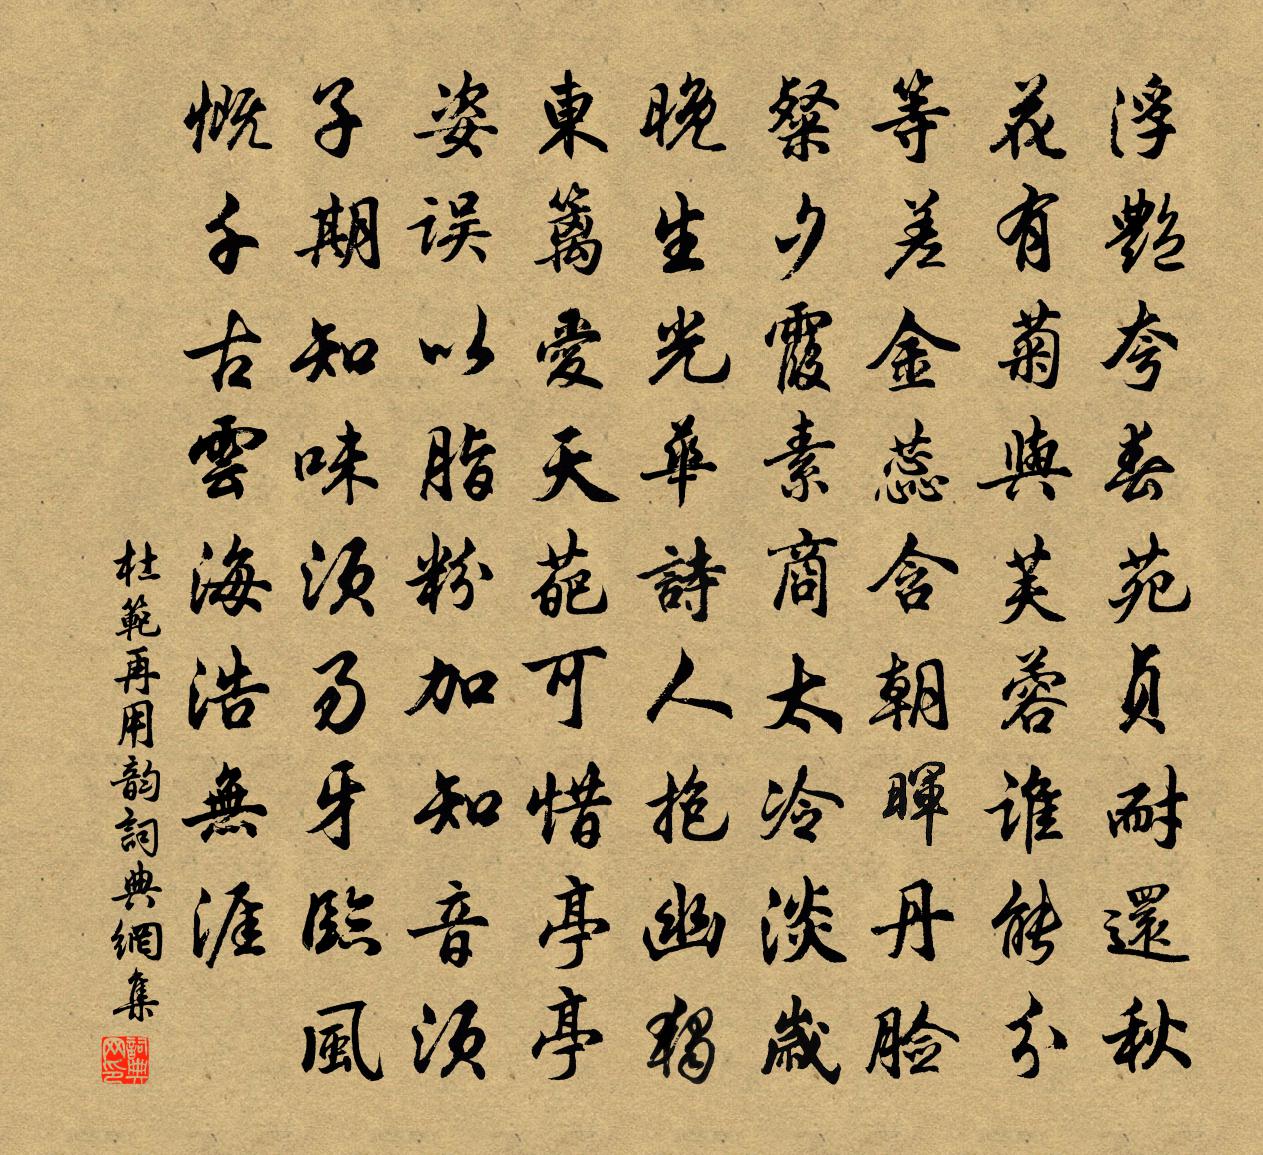 浮艷夸春苑貞耐還秋
花有菊與芙蓉誰能分
等差金蕊含朝暉丹臉
粲夕霞素商太冷淡歲
晚生光華詩人抱幽獨
東籬愛天葩可惜亭亭
姿误以脂粉加知音須
子期知味須易牙臨風
慨千古雲海浩無涯
杜範再用韵詞典網集
詞典网印